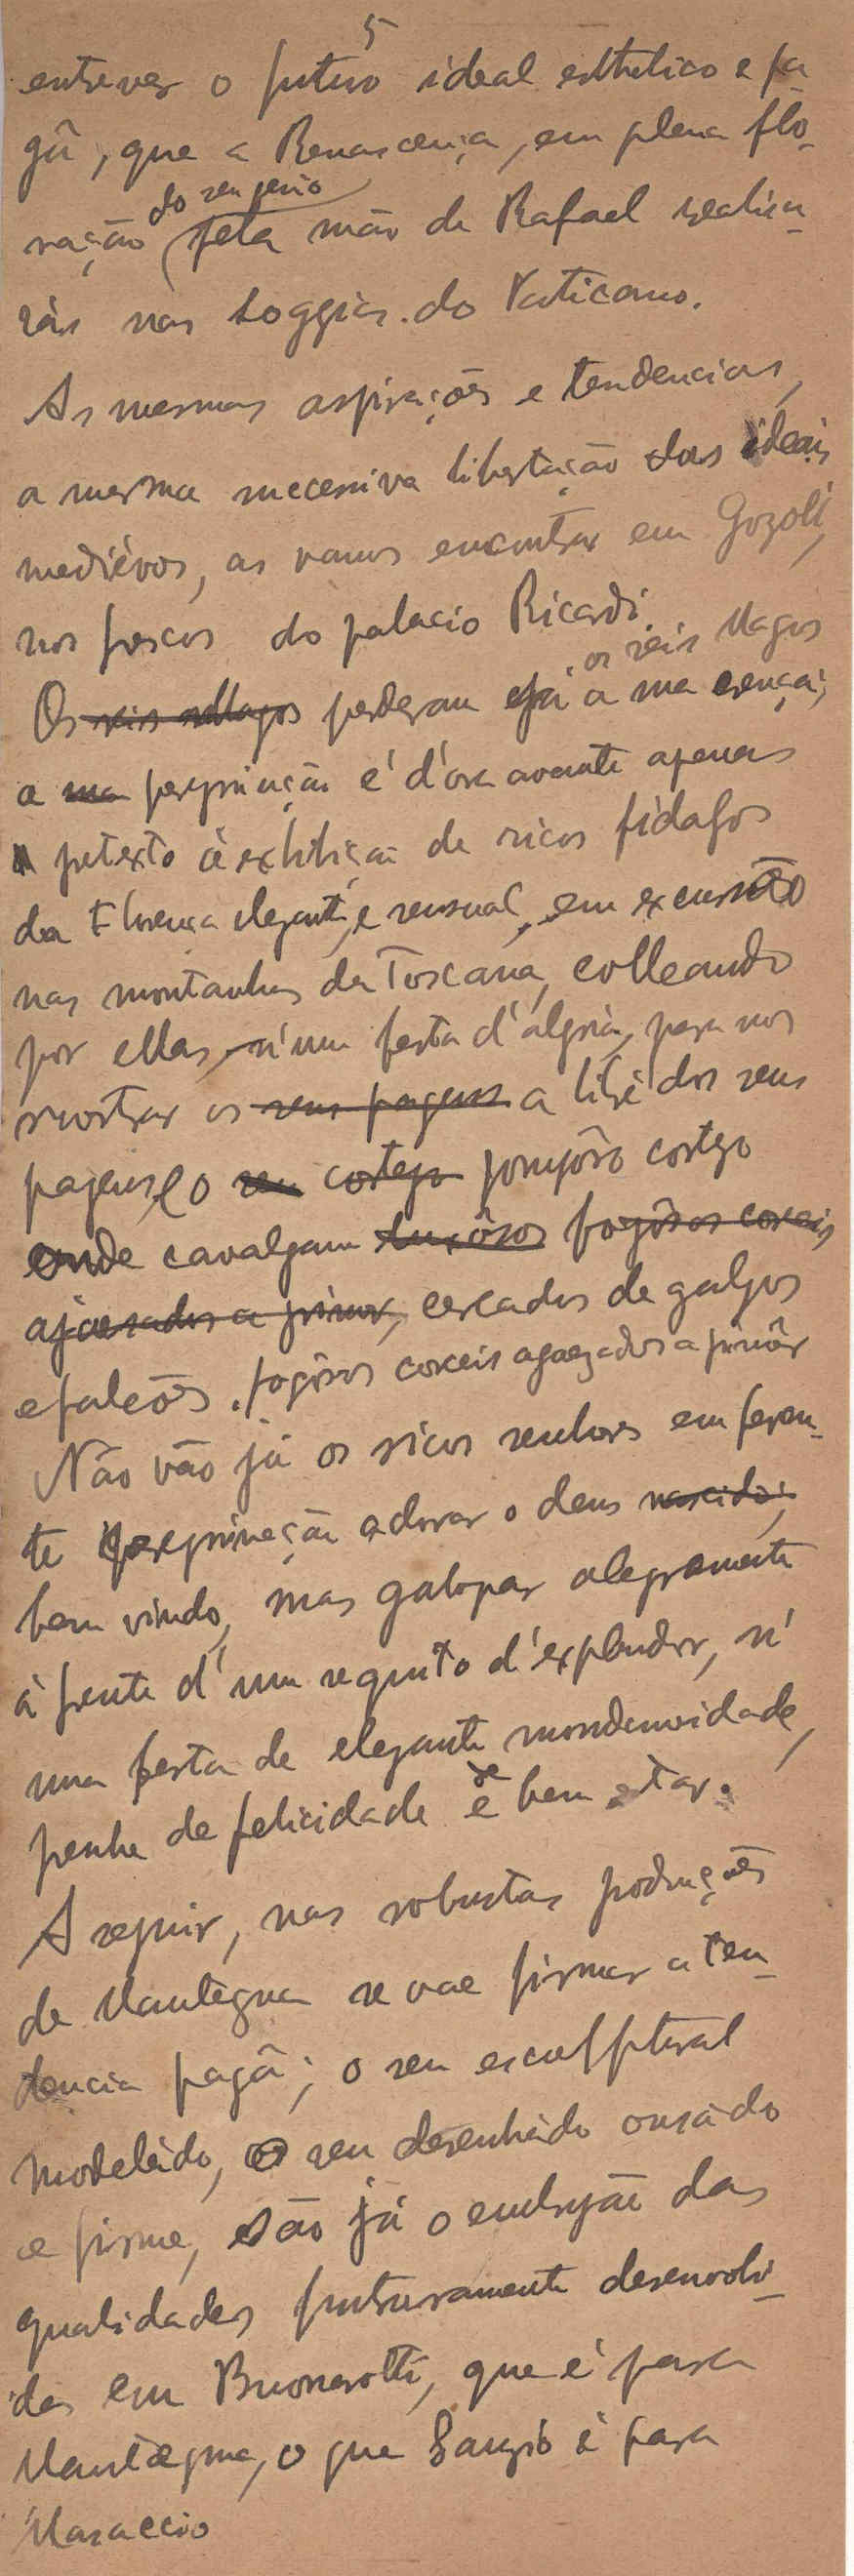 5
entrever o futuro ideal esthetico e pa-
gã, que a Renascença, em plena flo-
do seu genio
ração pela mão de Rafael realisa-
rás nas Loggias do Vaticano.
As mesmas aspirações e tendencias,
a mesma successiva libertação dos ideais
mediévos, as vamos encontrar em Gozoli,
nos frescos do palacio Ricardi.
os reis Magos
Os reis Magos perderam já a sua crença;
a sua peregrinação é d'ora avante apenas
pretexto á exhibição de ricos fidalgos
da Florença elegante, e sensual, em excursão
nas montanhas da Toscana, colleando
por ellas, n'uma festa d'algria, para nos
mostrar os seus pagens a libré dos seus
pagens, e o seu cortejo pompôso cortejo
onde cavalgam luxôsos fogôsos corceis
ajaesados a primor, cercados de galgos
e falcões. fogôsos corceis ajaezados a primôr
Não vão já os ricos senhores em feren-
te peregrinação adorar o deus nascido;
bem vindo, mas galopar alegremente
á frente d'um sequito d'explendor, n'
uma festa de elegante mondanidade,
de
penhe de felicidade e bem estar.
A seguir, nas robustas produções
de Mantegna se vae firmar a ten-
dencia pagã; o seu esculptural
modeládo, o seu desenhádo ousádo
e firme, são já o embryão das
qualidades futuramente desenvolvi-
das em Buonarotti, que é para
Mantegna, o que Sanzio é para
Masaccio